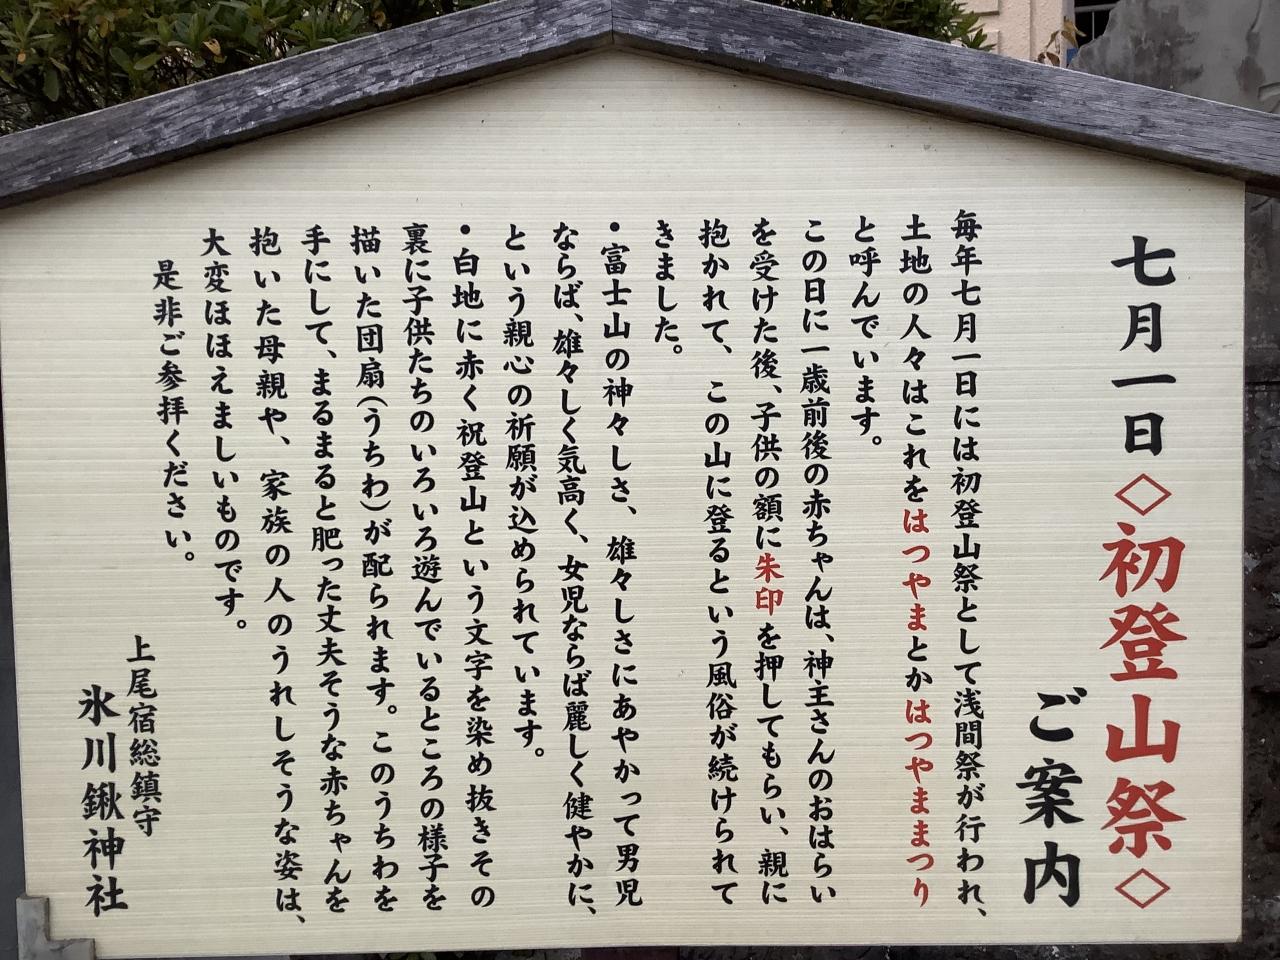 七月一日◇初登山祭◇
ご案内
毎年七月一日には初登山祭として浅間祭が行われ、
土地の人々はこれをはつやまとかはつやままつり
と呼んでいます。
この日に一歳前後の赤ちゃんは、神主さんのおはらい
を受けた後、子供の額に朱印を押してもらい、親に
抱かれて、この山に登るという風俗が続けられて
きました。
・富士山の神々しさ、雄々しさにあやかって男児
ならば、雄々しく気高く、女児ならば麗しく健やかに、
という親心の祈願が込められています。
・白地に赤く祝登山という文字を染め抜きその
裏に子供たちのいろいろ遊んでいるところの様子を
描いた団扇(うちわ)が配られます。このうちわを
手にして、まるまると肥った丈夫そうな赤ちゃんを
抱いた母親や、家族の人のうれしそうな姿は、
大変ほほえましいものです。
是非ご参拝ください。
上尾宿総鎮守
氷川鍬神社